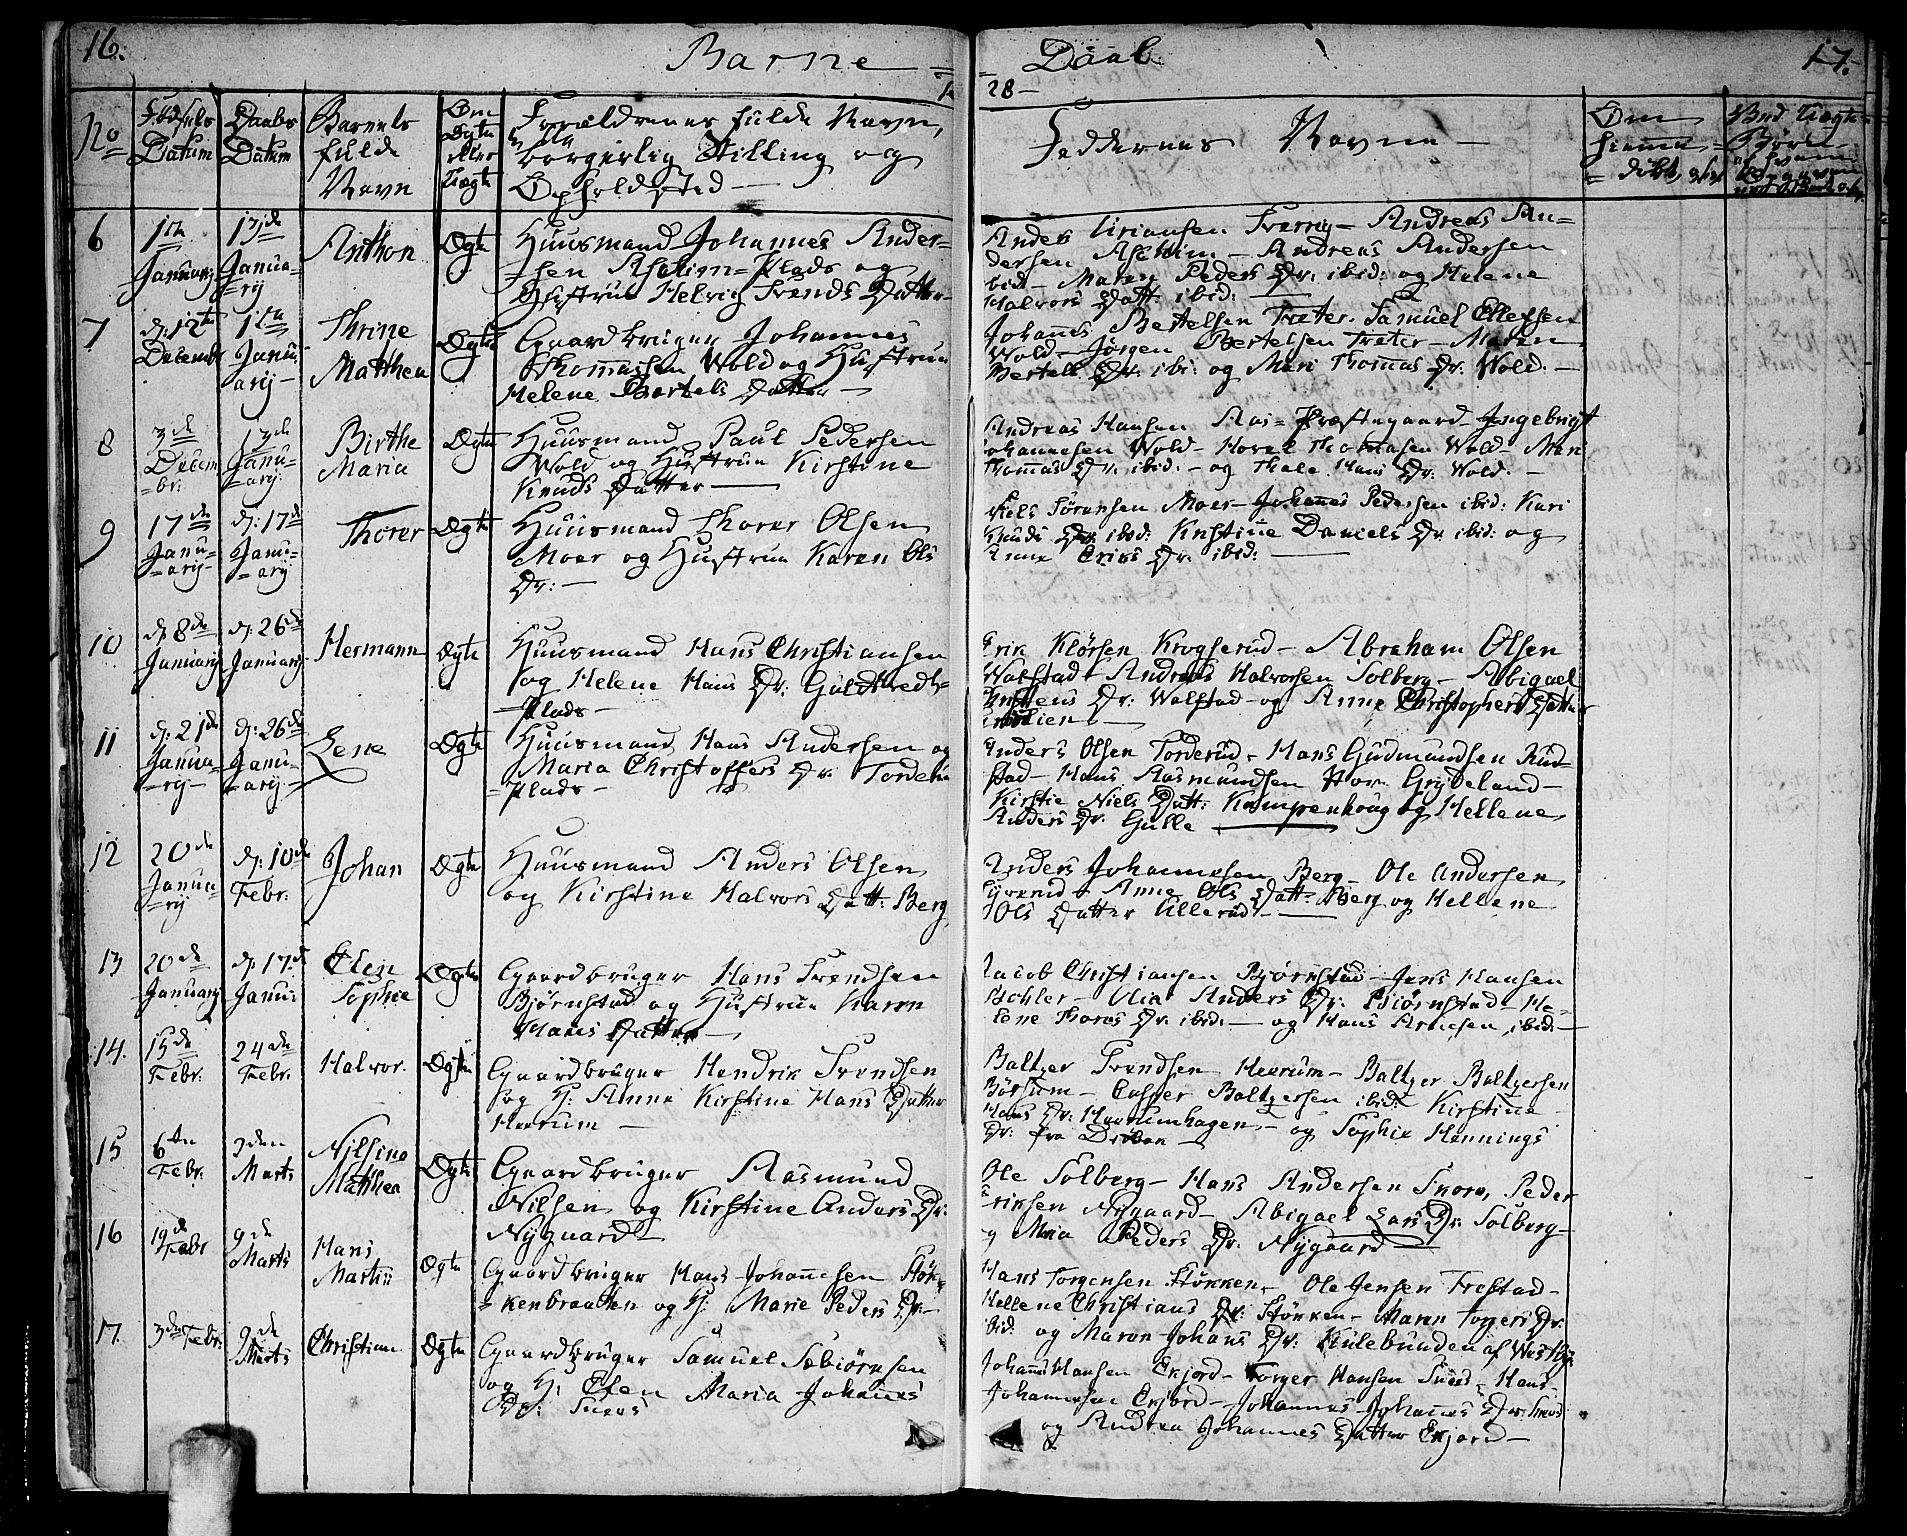 16.
Barne =
No
Fødsels Datum
Daabs Datum
Barnets fulde Navn
Om Ægte eller Uægte
Forældrenes fulde Navn,
borgerlig Stilling og
Opholdsted —
6
13de Januarij
Anthon
Ægte
Huusmand Johannes Ander=
=sen Askim=Plads og
Hustrue Helvig Svends Datter
7
d: 12te Decembr
Januarij —
Thrine Matthea
Ægte
Gaardbruger Johannes
Thomassen Wold og Hustrue
Helene Bertels Datter —
8
3de Decem=br:
13de Janu=arij
Birthe Maria
Ægte
Huusmand Paul Pedersen
Wold og Hustrue Kirstine
Knuds Datter —
9
17de Janu=arij
d: 17de Janu=arij
Thorer
Ægte
Huusmand Thorer Olsen
Moer og Hustrue Karen Ols
Dr: —
10
d 8de Januarij
d: 26de Januarij
Hermann
Ægte
Huusmand Hans Christiansen
og Helene Hans Dr: Guldbreds=
=Plads —
11
d: 21de Janua=rij
d: 26de Janu=arij
Lene
Ægte
Huusmand Hans Andersen og
Maria Christoffers Dr: Torderu
=Plads —
12
20de Janua=rij
d: 10de Febr:
Johan
Ægte
Huusmand Anders Olsen
og Kirstine Halvors Datt: Berg
13
20de Januarij
d 17de Janu:
Elen Sophie
Ægte
Gaardbruger Hans Svendsen
Bjørnstad og Hustrue Karen
Hans Datter —
14.
15de Febr:
24de Febr.
Halvor.
Ægte
Gaardbruger Hendrik Svendsen
og H: Anne Kirstine Hans Datter
Heerum —
15
6te Febr:
3den Marts
Nilsine Matthea
Ægte
Gaardbruger Rasmund
Nilsen og Kirstine Anders Dr:
Nygaard
16
19de Febr
9de Marts
Hans Martin
Ægte
Gaardbruger Hans Johannesen Støk=
=kenbraatten og H: Marie Peders Dr: —
17
3de Febr:
9de Marts
Christian
Ægte
Gaardbruger Samuel Sebiørnsen
og H: Elen Maria Johannes
Dr:
Daab
17.
28 —
Faddernes Navne —
Om hiemme=døbt,
Ved Uægte Børn
Anders Svarrig — Andreas An=
dersen Askim — Andreas Andersen
ibid — Maren Peders Dr: ibid: og Helene
Halvors Datt ibid: —
Johannes Bertelsen Træter. Samuel Ellefsen
Wold — Jørgen Bertelsen Træter — Maren
Bertels Dr: ibi: og Mari Thomas Dr: Wold. —
Andreas Hansen Aas= Præstegaard — Ingebrigt
Johannesen Wold — Thomasen Wold — Mari
Thomas Dr: ibid: — og Thale Hans Dr: Wold. —
Niels Sørensen Moer — Johannes Pedersen ibid: Kari
Knuds Dr: ibid: Kirstine Daniels Dr ibid: og
Anne Eriks Dr: ibid: —
Erik Krogserud — Abraham Olsen
Wolstad — Andreas Halvorsen Solberg — Abigael
Dr: Wolstad — og Anne Christophers Datter
Anders Olsen Torderud — Hans Gudmundsen Rud=
stad — Hans Rasmundsen Grydeland —
Kirstie Niels Datt: Kampenhoug og Hellene
Anders Dr. Gulle —
Anders Johannesen Berg — Ole Andersen
Anne Ols Datt. Berg og Hellene
Ols Datter Ullerud —
Jacob Christiansen Bjørnstad — Jens Hansen
Bøhler — Anders Dr: Biørnstad — He=
lene Thores Dr. ibid: — og Hans Arnesen, ibid: —
Baltzer Svendsen Heerum — Baltzer Baltzersen
Børsum — Casper Baltzersen ibid: Kirstine
Hans Dr: Heerumhagen — og Sophie Hennings
Dr: fra Drøbak —
Ole Solberg — Hans Andersen Peder
Nygaard — Abigael Lars Dr: Solberg —
og Maria Peders Dr: Nygaard —
Hans Torgersen Støkken, Ole Jensen Frestad —
Hellene Christians Dr: Støkken — Maren Torgers Dr:
ibid: og Maren Johans Dr: Kulebunden af Westby
Johannes Hansen Ekjord — Torger Hansen — Hans
Johannesen Ekjord — Johannes Johannes
og Andrea Johannes Datter Ekjord —